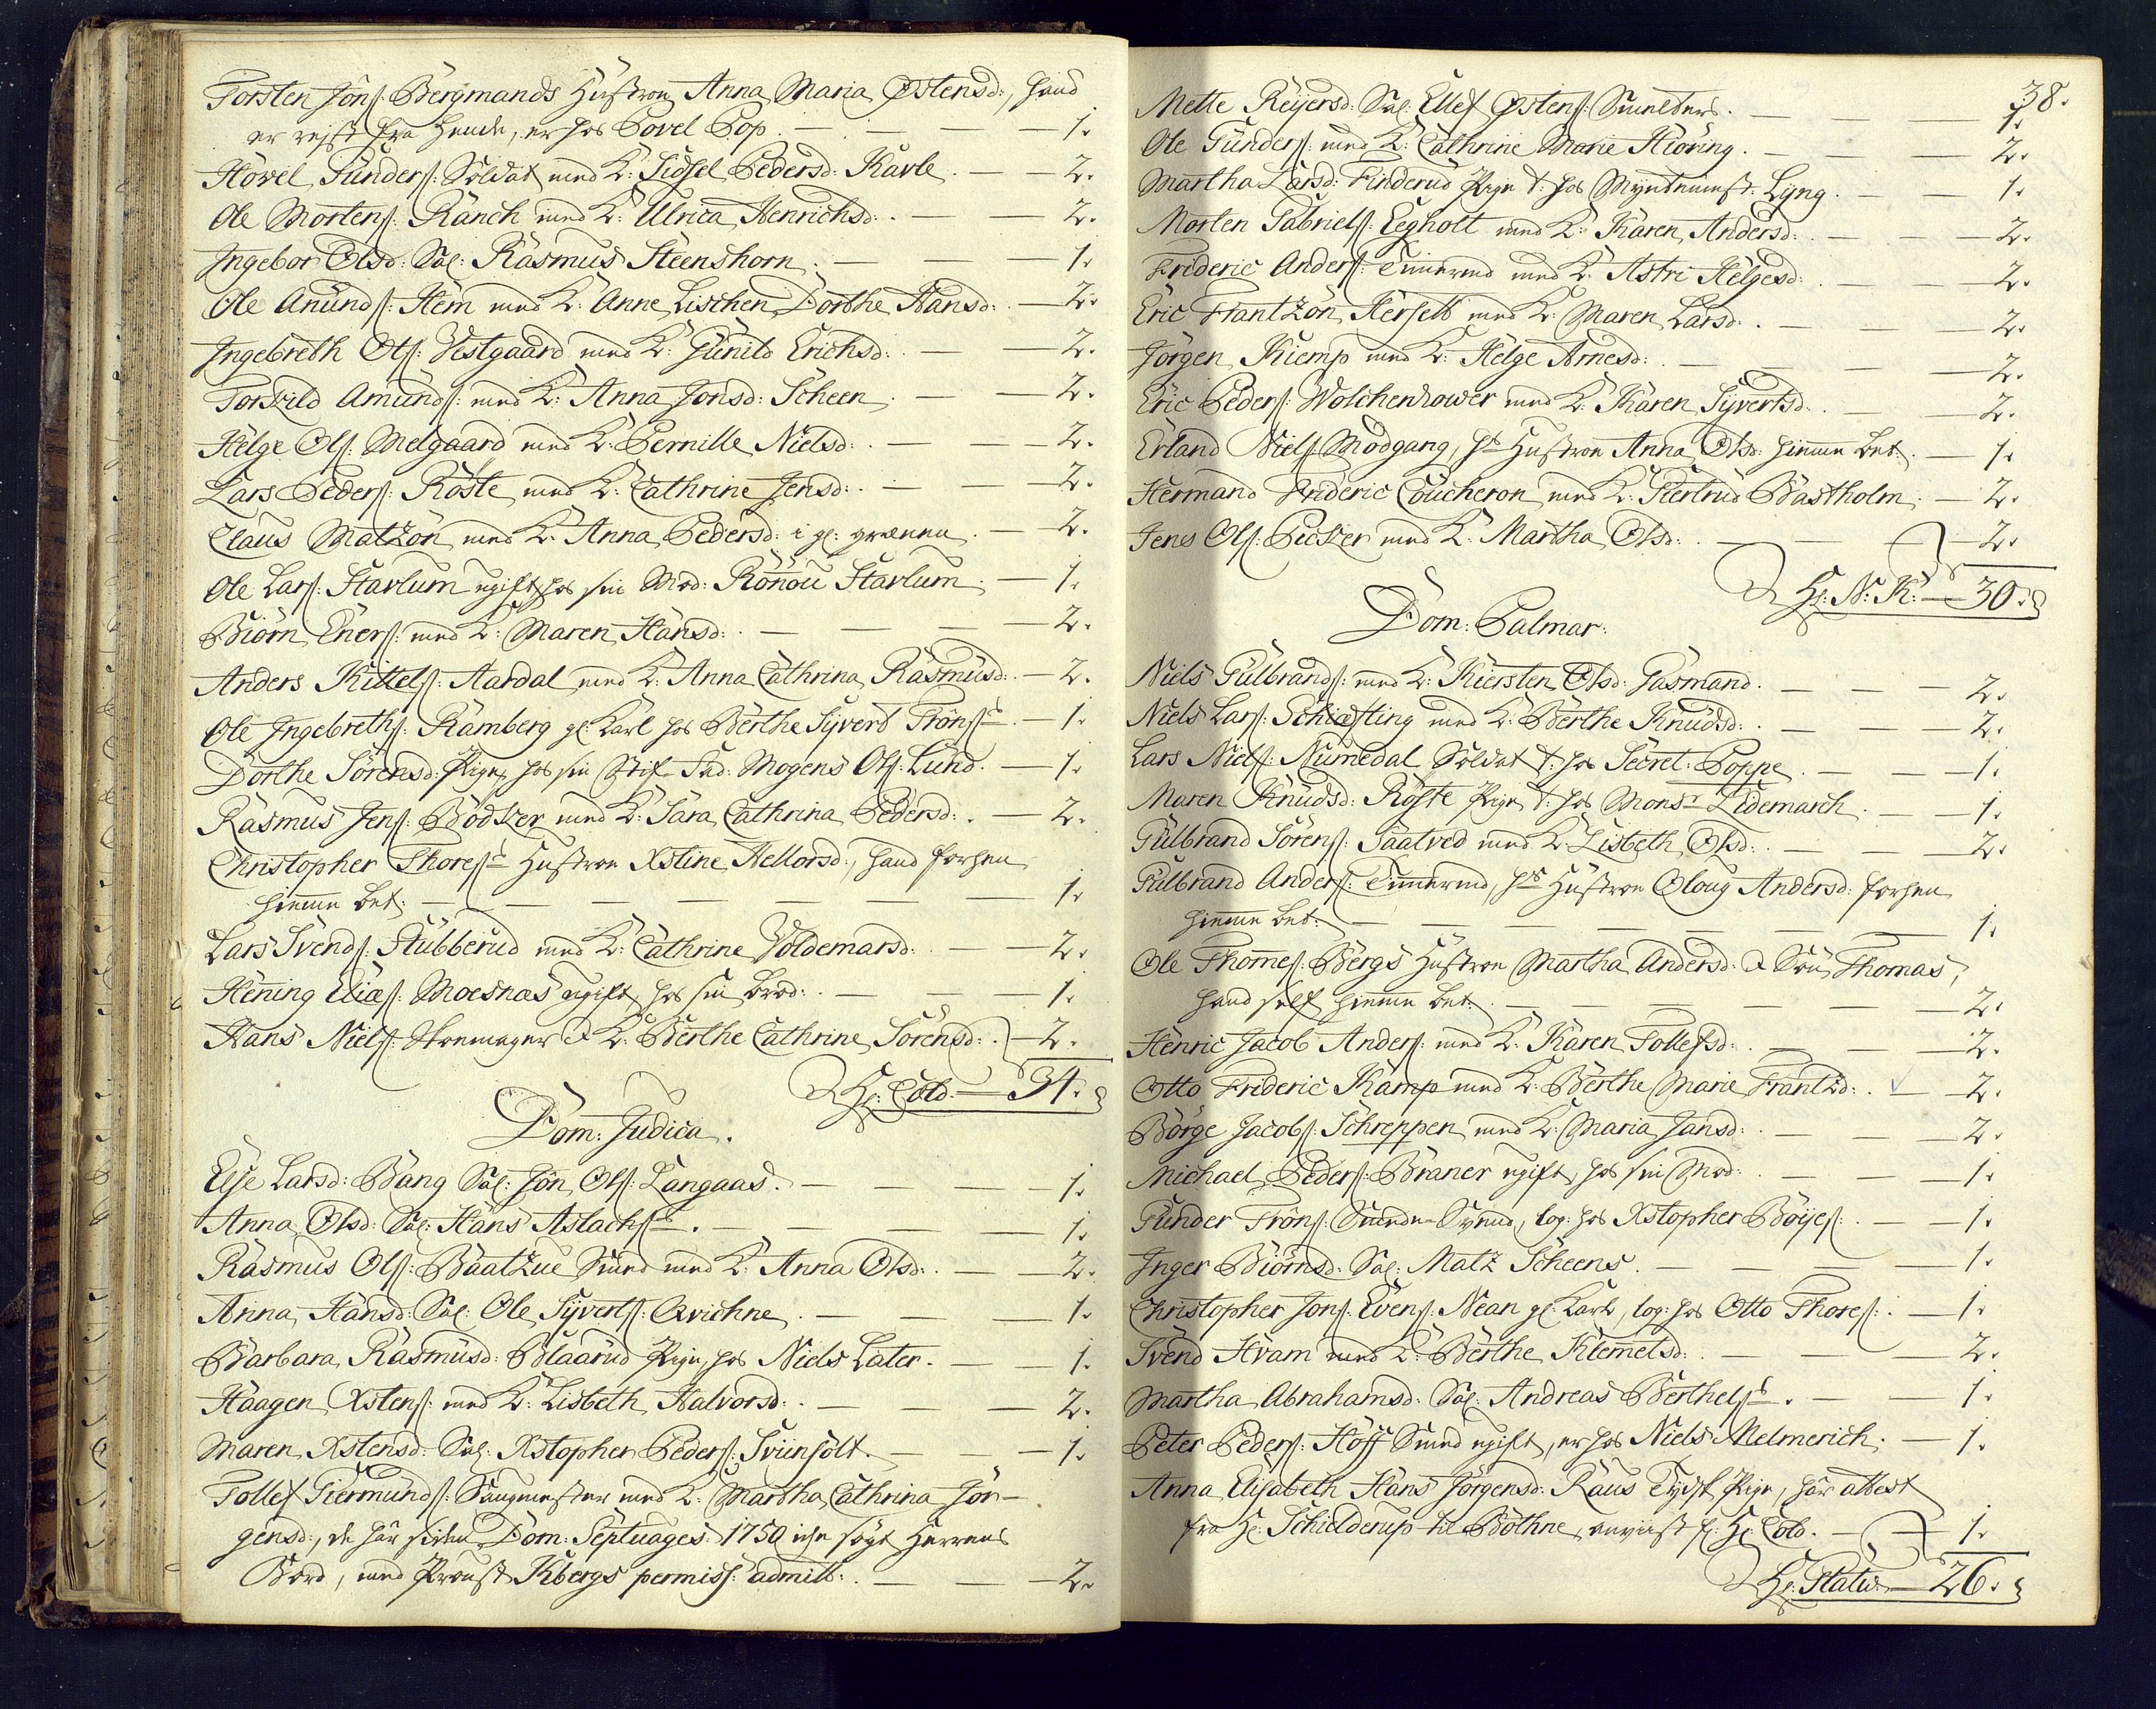 Torsten Jons: Bergmands Hustroe Anna Maria Østensd:, hand
er rejst fra hende, er hos Povel Pop. — — — 1.
Hövel Gunders: Soldat med K: Sidsel Pedersd: Kavle. — — 2.
Ole Mortens: Ranch med K: Ulrica Henrichsd: . — — 2.
Ingebor Olsd: Sal: Rasmus Steenshorn. — — — 1.
Ole Anunds: Hem med K: Anne Lischen Dorthe Hansd: — 2.
Ingebreth Ols: Vestgaard med K: Gunild Erichsd: . — — 2.
Torkild Amunds: med K: Anna Jonsd: Scheen. — — 2.
Helge Ols: Melgaard med K: Pernille Nielsd: . — — 2.
Lars Peders: Röste med K: Cathrine Jensd: . — — 2.
Claus Matzön med K: Anna Pedersd: i gl: grænnen. — 2.
Ole Lars: Stavlum ugift, hos sin Mod: Rönnou Stavlum. — 1.
Biörn Eners: med K: Maren Hansd: . — — — 2.
Anders Kittels: Aardal med K: Anna Cathrina Rasmusd: . — 2.
Ole Ingebreths: Ramberg gl: Karl hos Berthe Syvert Tröns: — 1.
Dorthe Sörensd: Pige, hos sin Stif-Fad: Mogens Ols: Lund. — 1.
Rasmus Jens: Bödker med K: Sara Cathrina Pedersd: . — 2.
Christopher Thores: Hustroe Xstine Hellorsd:, hand forhen
hiemme bet: — — — — — — — 1.
Lars Svends: Stubberud med K: Cathrine Voldemarsd: . — — 2.
Hening Eliæ: Moesnæs ugift, hos sin brod: . — — — 1.
Hans Niels: Skoemager & K: Berthe Cathrine Sörensd: . — 2.
Hr: Cold. — 34.
Dom: Judica.
Else Larsd: Bang Sal: Jön Ols: Langaas. — — — 1.
Anna Olsd: Sal: Hans Aslachs: . — — — 1.
Rasmus Ols: Baatzue Smed med K: Anna Olsd: . — — 2.
Anna Hansd: Sal: Ole Syverts: Qvichne. — — — 1.
Barbara Rasmusd: Blaarud Pige, hos Niels Later. — — 1.
Haagen Xstens: med K: Lisbeth Halvorsd: . — — — 2.
Maren Xstensd: Sal: Xstopher Peders: Sviinsolt. — — 1.
Tollef Giermunds: Saugmester med K: Martha Cathrina Jör-
gensd:, de har siden Dom: Septuages: 1750 iche søgt Herrens
Bord, med Provst Kbergs permiss: admitt: . — — — 2.
38.
Mette Reijersd: Sal: Ellef Østens: Smelters. — — — 1.
Ole Gunders: med K: Cathrine Marie Hiöring. — — — 2.
Martha Larsd: Finderud Pige t: hos Myntmest: Lyng. — — 1.
Morten Gabriels: Eegholt med K: Karen Andersd: . — — 2.
Frideric Anders: Timermd med K: Astri Helgesd: . — — 2.
Eric Frantzön Herseth med K: Maren Larsd: . — — — 2.
Jörgen Kiemp med K: Helge Arnesd: . — — — 2.
Eric Peders: Wolchenhower med K: Karen Syvertsd: . — — 2.
Erland Niels: Modgang, hs Hustroe Anna Olsd: hiemme bet: . — 1.
Hermand Frideric Coucheron med K: Gertrud Bastholm. — 2.
Jens Ols: Picker med K: Martha Olsd: . — — — 2.
Hr: N: K: — 30.
Dom: Palmar:
Niels Gulbrands: med K: Kiersten Olsd: Gasmand. — — — 2.
Niels Lars: Schiefting med K: Berthe Knudsd: . — — — 2.
Lars Niels: Numedal Soldat t: hos Secret: Poppe. — — 1.
Maren Knudsd: Röste Pige t: hos Monsr Lidemarch. — — 1.
Gulbrand Sörens: Saatved med K: Lisbeth Olsd: . — — — 2.
Gulbrand Anders: Timermd, hs Hustroe Oloug Andersd: forhen
hiemme bet: — — — — — — 1.
Ole Thomes: Bergs Hustroe Martha Andersd: & Sön Thomas,
hand self hiemme bet: . — — — — 2.
Henric Jacob Anders: med K: Karen Tollefsd: . — — — 2.
Otto Frideric Kamp med K: Berthe Marie Frantzd: . — — 2.
Börge Jacobs: Schreppen med K: Maria Jansd: . — — — 2.
Michael Peders: Braner ugift, hos sin Mod: . — — — 1.
Gunder Tröns: Smede-Svend, log: hos Xstopher Böijes: . — — 1.
Inger Biörnsd: Sal: Matz Scheens. — — — — 1.
Christopher Jons: Evens: Nean gl: Karl, log: hos Otto Thores: . — 1.
Svend Hvam med K: Berthe Klemetsd: . — — — 2.
Martha Abrahamsd: Sal: Andreas Berthels: . — — 1.
Peter Peders: Höff Smed ugift, er hos Niels Melmerich. — 1.
Anna Elisabeth Hans Jörgensd: Raus Tydsk Pige, har attest
fra Hr: Schielderup til Böthne, anviist f: Hr: Cold. — 1.
Hr: Statw. — 26.